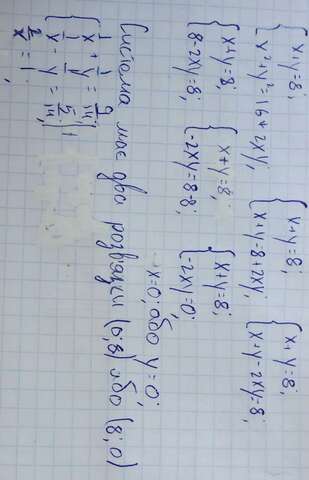 {x+y=8; {x+y=8; {x+y=8;
x²+y²=16+2xy; x+y=8+2xy; x+y-2xy=8;
{x+y=8; {x+y=8; {x+y=8;
8-2xy=8; -2xy=8-8; -2xy=0;
x=0; або y=0;
Система має два розвязки (0;8) або (8;0)
{1/x + 1/y = 9/14;
1/x - 1/y = 5/14;
2/x = 1;